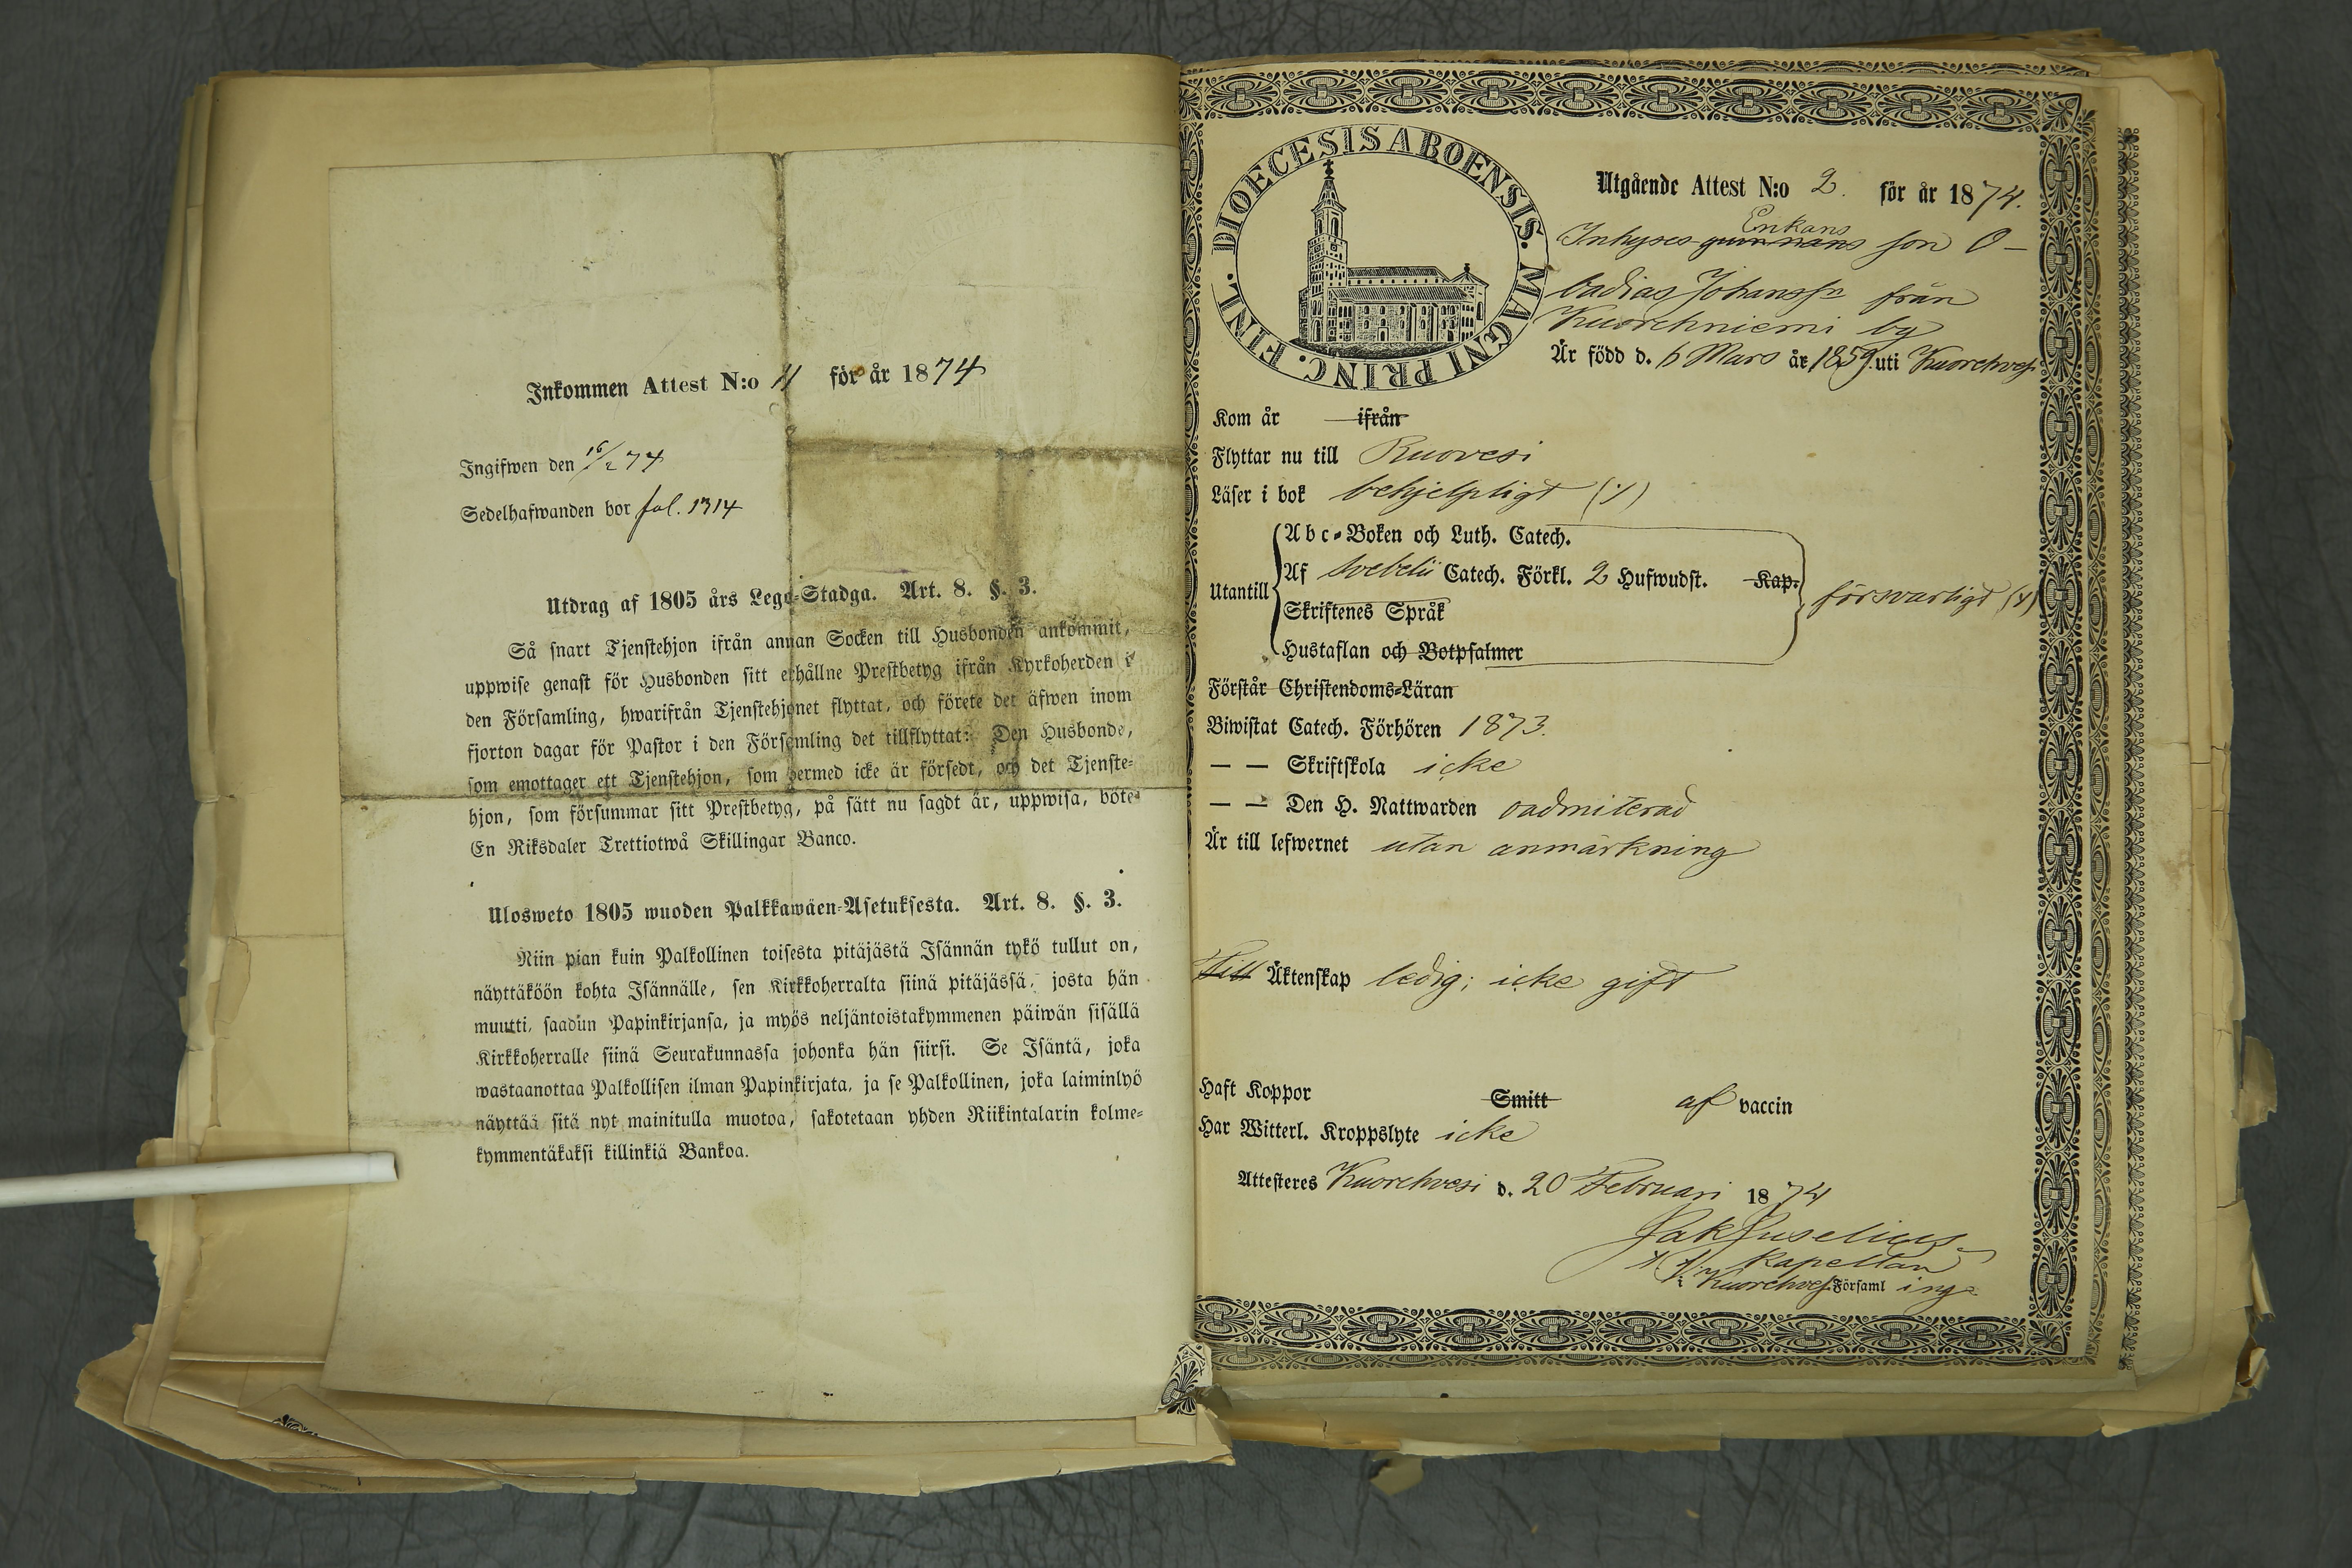 Inkommen Attest N:o 11 för år 1874
Ingifwen den 16/2 74
Sedelhafwanden bor fol. 1314
Utdrag af 1805 års Lego-Stadga. Art. 8. §. 3.
Så snart Tjenstehjon ifrån annan Socken till Husbonden ankommit,
uppwise genast för Husbonden sitt erhållne Prestbetyg ifrån Kyrkoherden i
den Församling, hwarifrån Tjenstehjonet flyttat, och förete det äfwen inom
fjorton dagar för Pastor i den Församling det tillflyttat: Den Husbonde,
som emottager ett Tjenstehjon, som dermed icke är försedt, och det Tjenste-
hjon, som försummar sitt Prestbetyg, på sätt nu sagdt är, uppwisa, böte
En Riksdaler Trettiotwå Skillingar Banco.
Ulosweto 1805 wuoden Palkkawäen-Asetuksesta. Art. 8. §. 3.
Niin pian kuin Palkollinen toisesta pitäjästä Isännän tykö tullut on,
näyttäköön kohta Isännälle, sen Kirkkoherralta siinä pitäjässä, josta hän
muutti, saadun Papinkirjansa, ja myös neljäntoistakymmenen päiwän sisällä
Kirkkoherralle siinä Seurakunnassa johonka hän siirsi. Se Isäntä, joka
wastaanottaa Palkollisen ilman Papinkirjata, ja se Palkollinen, joka laiminlyö
näyttää sitä nyt mainitulla muotoa, sakotetaan yhden Riikintalarin kolme-
kymmentäkaksi killinkiä Bankoa.
DIOECESIS ABOENSIS. MAGNI PRINC. FINL.
Utgående Attest N:o 2. för år 1874.
Enkans
Inhyses son O-
badias Johanss:n från
Kuorehniemi by
Är född d. 6 Mars år 1859 uti Kuorehvesi
Kom år ifrån
Flyttar nu till Ruovesi
Läser i bok behjelpligt (y)
Utantill
Abc-Boken och Luth. Catech.
Af Svebelii Catech. Förkl. 2 Hufwudst. Kap.
Skriftenes Språk
Hustaflan och Botpsalmer
försvarligt (y)
Förstår Christendoms-Läran
Biwistat Catech. Förhören 1873.
— — Skriftskola icke
— — Den H. Nattwarden oadmitterad
Är till lefwernet utan anmärkning
Till Äktenskap ledig; icke gift
Haft Koppor Smitt af vaccin
Har Witterl. Kroppslyte icke
Attesteres Kuorehvesi d. 20 Februari 1874
Jak Juselius
Kapellan
i Kuorehvesi Församling